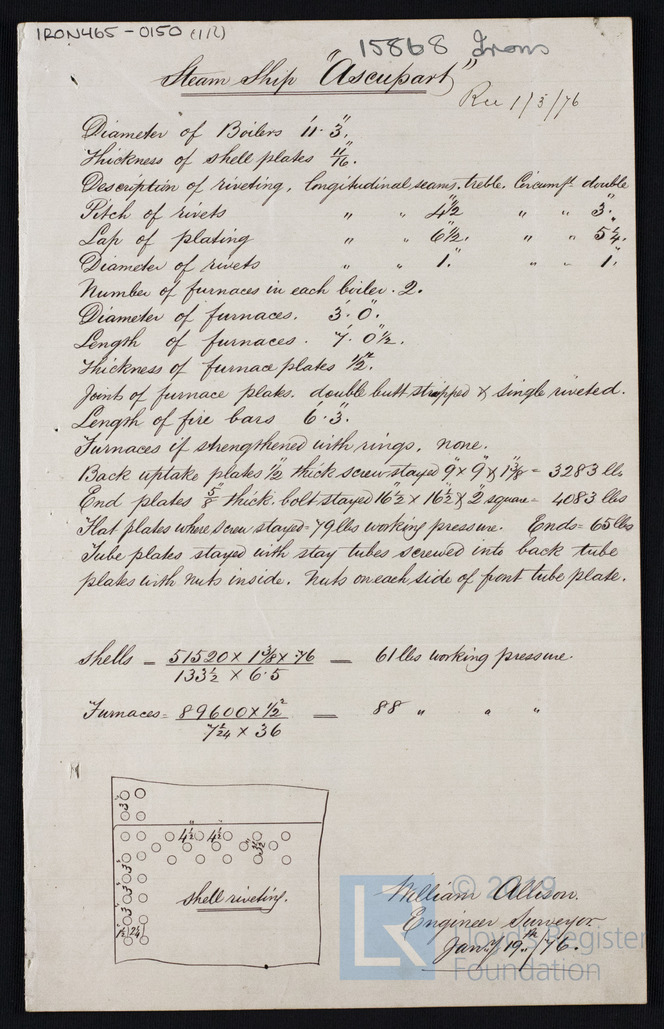 IRON465-0150 (1/2)
15868 Irons
Steam Ship "Ascupart"
Rec 1/3/76
Diameter of Boilers 11' 3".
Thickness of shell plates 11/16".
Description of riveting, longitudinal seams. treble. Circumfl. double
Pitch of rivets " " 4½" " " 3".
Lap of plating " " 6½". " " 5¼".
Diameter of rivets " " 1". " " 1".
Number of furnaces in each boiler. 2.
Diameter of furnaces. 3'. 0".
Length of furnaces. 7'. 0½".
Thickness of furnace plates ½".
Joint of furnace plates. double butt strapped & single riveted.
Length of fire bars 6'. 3".
Furnaces if strengthened with rings, none.
Back uptake plates ½" thick screw stayed 9" x 9" & 1⅜" = 3283 lbs
End plates ⅝" thick. bolt stayed 16½" x 16½" & 2" square = 4083 lbs
Flat plates where screw stayed = 79 lbs working pressure. Ends = 65 lbs
Tube plates stayed with stay tubes screwed into back tube
plates with nuts inside. Nuts on each side of front tube plate.
Shells = 51520 x 1⅜ x .76 = 61 lbs working pressure.
133½ x 6.5
Furnaces = 89600 x ½² = 88 " " "
x 36
3"
4½" 4½"
3"
3"
3"
3"
Shell riveting.
William Allison.
Engineer Surveyor
Jany 19th/76.
© 2019
Lloyd's Register
Foundation
LR